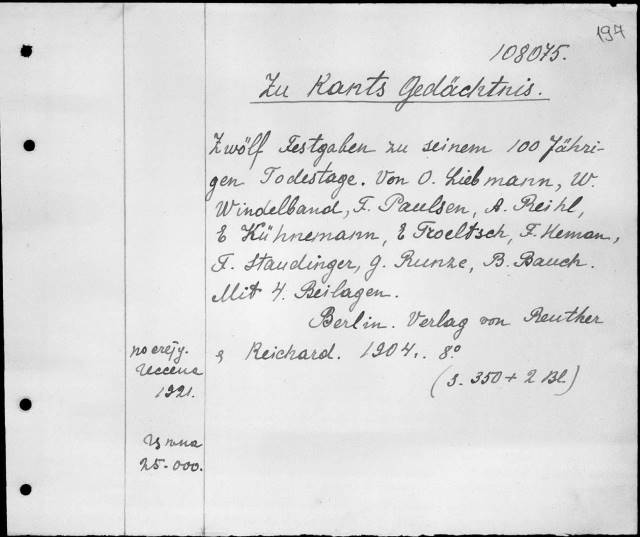 197
108075.
Zu Kants Gedächtnis.
Zwölf Festgaben zu seinem 100 Jähri-
gen Todestage. Von O. Liebmann, W.
Windelband, F. Paulsen, A. Reihl,
E Kühnemann, E Troeltsch, F. Heman,
F. Staudinger, G. Runze, B. Bauch.
Mit 4. Beilagen.
Berlin. Verlag von Reuther
& Reichard. 1904.. 8º
(S. 350 + 2 Bl.)
1921.
25.000.